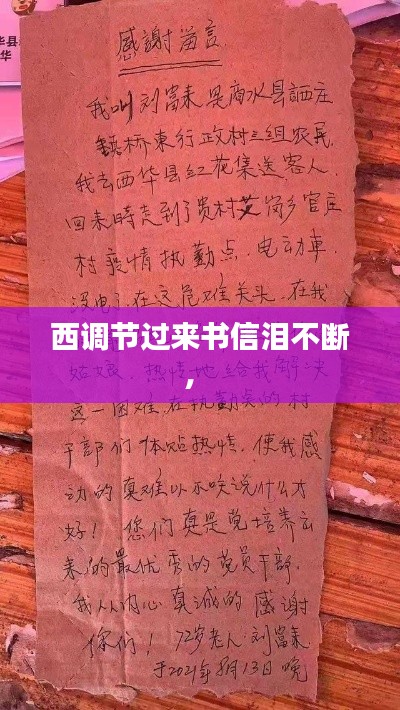 感謝留言
我叫刘富来是商水县
镇桥东行政村三组农民
我去西华县红花集送客人
回来時走到了贵村艾岗乡官庄
村疫情执勤点,电动車
没电了在这危难关头,在我
西调节过来书信泪不断
,
姑娘,热情地给我解决
这一困难,在执勤点的村
干部们体贴热情,使我感
动的真难以示唉说什么才
好!您们真是党培养出
来的最优秀的党员干部,
我从内心真诚的感谢
你们!72岁老人:刘富来
于2021年8月13日晚
县
华